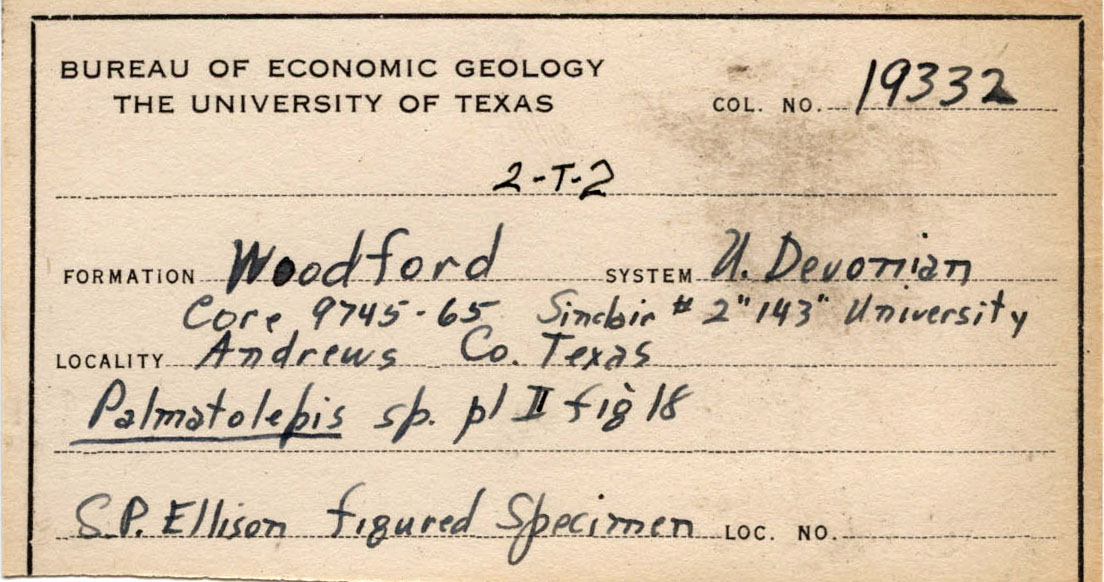 BUREAU OF ECONOMIC GEOLOGY
THE UNIVERSITY OF TEXAS COL. NO. 19332
2-T-2
FORMATION Woodford SYSTEM U. Devonian
Core 9745-65 Sinclair # 2 "143" University
LOCALITY Andrews Co. Texas
Palmatolepis sp. pl II fig 18
S.P. Ellison figured Specimen LOC. NO.